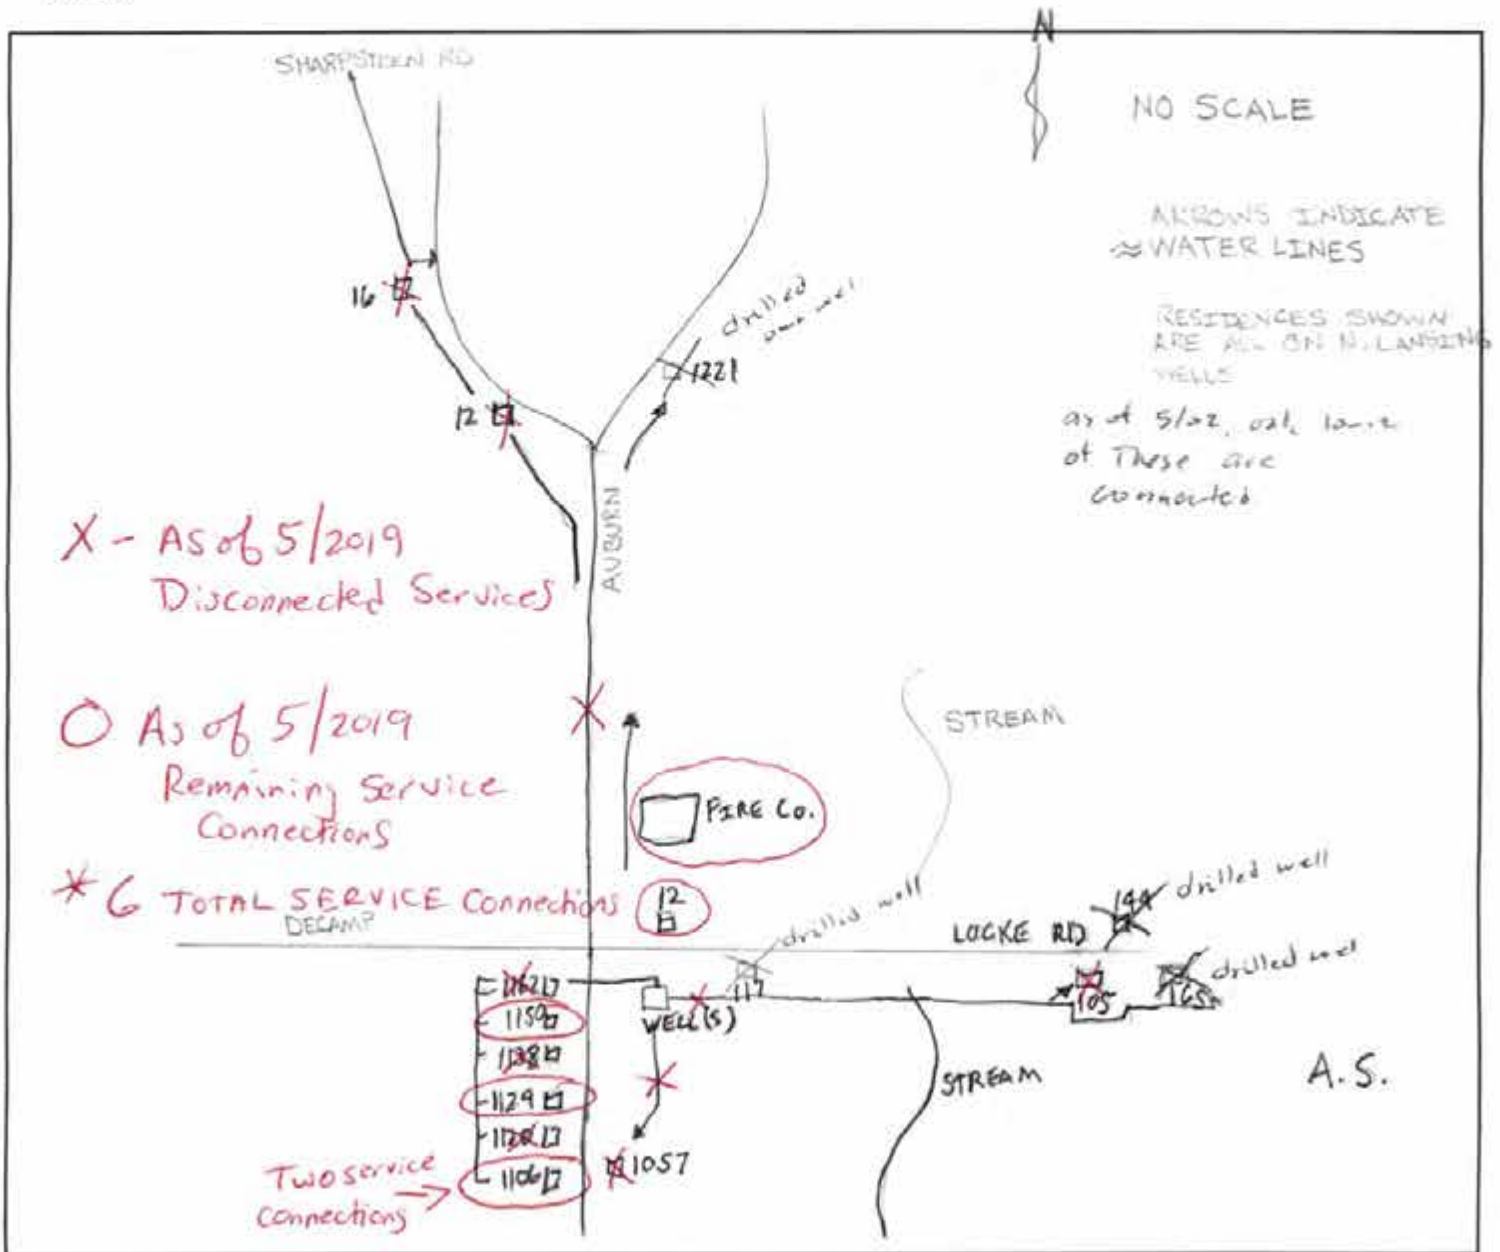 N
SHARPSTEEN RD
NO SCALE
ARROWS INDICATE
≈ WATER LINES
RESIDENCES SHOWN
ARE ALL ON N. LANSING
WELLS
as of 5/02,
of These are
connected
16
drilled
1221
12
AUBURN
X - AS of 5/2019
Disconnected Services
O As of 5/2019
Remaining Service
Connections
STREAM
FIRE Co.
* 6 TOTAL SERVICE Connections
12
DECAMP
drilled well
LOCKE RD
144 drilled well
117
105
165
drilled well
WELL(S)
1150
1138
1129
1106
1057
STREAM
A.S.
Two service
connections